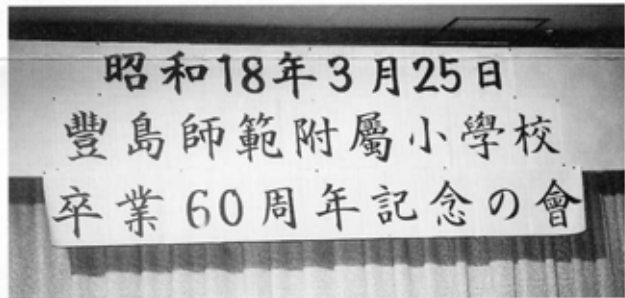 昭和18年3月25日
豐島師範附屬小學校
卒業60周年記念の會